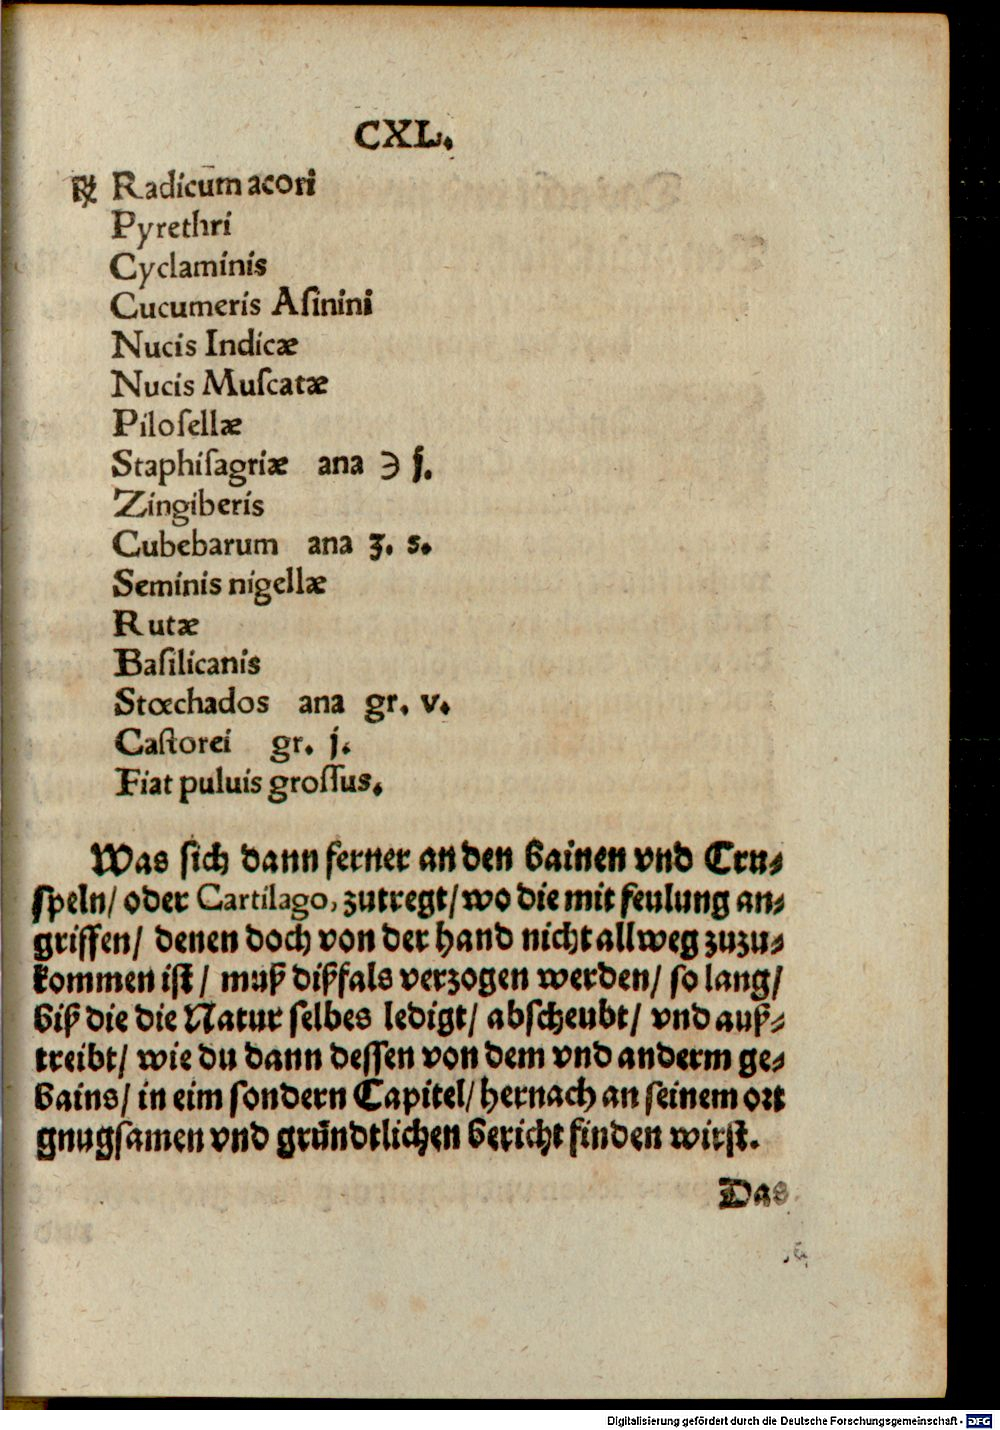 CXL.
℞ Radicum acori
Pyrethri
Cyclaminis
Cucumeris Aſinini
Nucis Indicæ
Nucis Muſcatæ
Piloſellæ
Staphiſagriæ ana ℈ ſ.
Zingiberis
Cubebarum ana ʒ. s.
Seminis nigellæ
Rutæ
Baſilicanis
Stœchados ana gr. v.
Caſtorei gr. j.
Fiat puluis groſſus.
Was ſich dann ferner an den bainen vnd Cru⸗
ſpeln/ oder Cartilago, zutregt/ wo die mit feulung an⸗
griffen/ denen doch von der hand nicht allweg zuzu⸗
kommen iſt/ muß dißfals verzogen werden/ ſo lang/
biß die die Natur ſelbes ledigt/ abſcheubt/ vnd auß⸗
treibt/ wie du dann deſſen von dem vnd anderm ge⸗
bains/ in eim ſondern Capitel/ hernach an ſeinem ort
gnugſamen vnd gründtlichen bericht finden wirſt.
Das
Digitalisierung gefördert durch die Deutsche Forschungsgemeinschaft - DFG